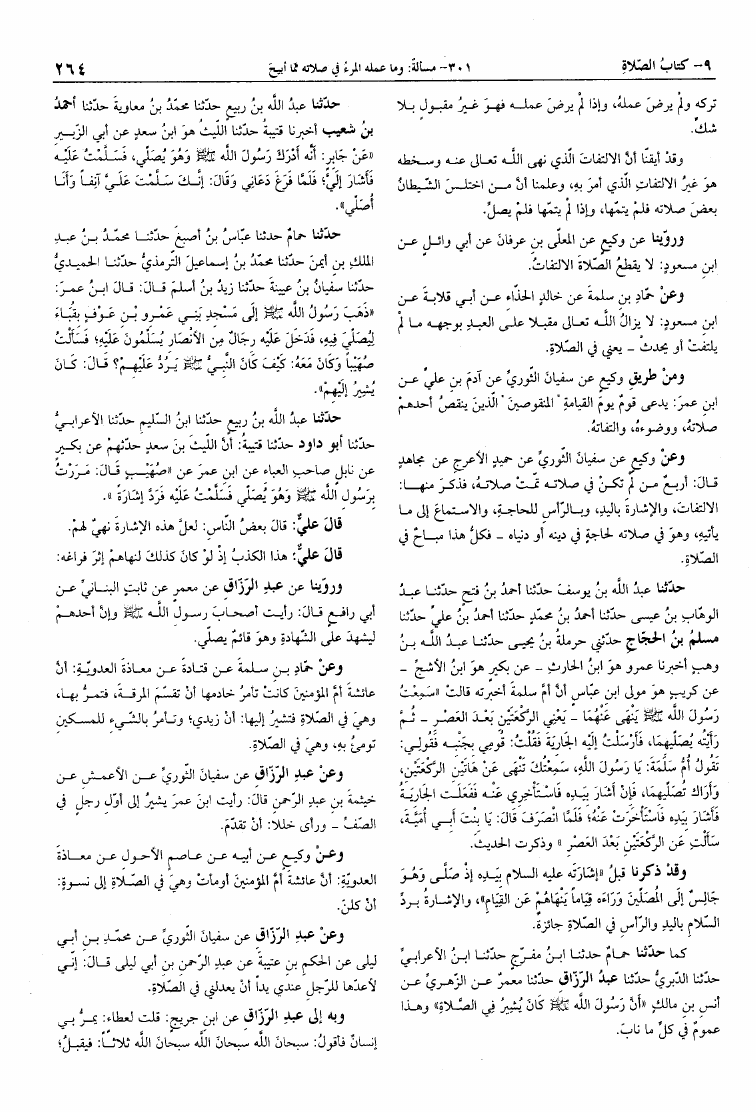 ٩- كتابُ الصّلاةِ
٣٠١- مسألةٌ: وما عمله المرءُ في صلاته ممّا أبيحَ
٢٦٤
تركه ولمْ يرضَ عملهُ، وإذا لمْ يرضَ عملــه فهـوَ غـيرُ مقبـولٍ بـلا
شكٍّ.
وقدْ أيقنّا أنّ الالتفاتَ الّذي نهى اللّــه تعـالى عنـه وسـخطه
هوَ غيرُ الالتفاتِ الّذي أمرَ بهِ، وعلمنا أنّ مــن اختلـسَ الشّـيطانُ
بعضَ صلاته فلم يتمّها، وإذا لمْ يتمّها فلمْ يصلِّ.
وروّينا عن وكيعٍ عن المعلّى بنِ عرفانَ عن أبي وائــلٍ عـن
ابنِ مسعودٍ: لا يقطعُ الصّلاةَ الالتفاتُ.
وعنْ حمّادِ بنِ سلمةَ عن خالدٍ الحذّاءِ عـن أبـي قلابـةَ عـن
ابنِ مسعودٍ: لا يزالُ اللّـه تعالى مقبلا علـى العبـدِ بوجهـه مـا لمْ
يلتفتْ أو يحدثْ - يعني في الصّلاةِ.
ومنْ طريقِ وكيعٍ عن سفيانَ الثّوريِّ عن آدمَ بنِ عليٍّ عـن
ابنِ عمرَ: يدعى قومٌ يومَ القيامةِ المنقوصينَ الّذينَ ينقصُ أحدهـم
صلاتهُ، ووضوءهُ، والتفاتهُ.
وعنْ وكيعٍ عن سفيانَ الثّوريِّ عن حميدٍ الأعرجِ عن مجاهدٍ
قـالَ: أربعٌ مـن لمْ تكـنْ في صلاتـه تمّـتْ صلاتـهُ، فذكـرَ منهــا:
الالتفاتَ، والإشارةَ باليدِ، وبـالرّأسِ للحاجـةِ، والاستماعَ إلى مـا
يأتيهِ، وهوَ في صلاته لحاجةٍ في دينه أو دنياه - فكلُّ هذا مبـاحٌ في
الصّلاةِ.
حدّثنا عبدُ اللّه بنُ يوسفَ حدّثنا أحمدُ بنُ فتحٍ حدّثنـا عبـدُ
الوهّابِ بنُ عيسى حدّثنا أحمدُ بنُ محمّدٍ حدّثنا أحمدُ بنُ عليٍّ حدّثنا
مسلمُ بنُ الحجّاجِ حدّثني حرملةُ بنُ يحيى حدّثنـا عبـدُ اللّـه بـنُ
وهبٍ أخبرنا عمرو هوَ ابنُ الحارثِ - عن بكيرٍ هوَ ابنُ الأشجِّ -
عن كريبٍ هوَ مولى ابنِ عبّاسٍ أنّ أمَّ سلمةَ أخبرته قالتْ «سَمِعْتُ
رَسُولَ اللّه ﷺ يَنْهَى عَنْهُمَا - يَعْنِي الرَّكْعَتَيْنِ بَعْـدَ العَصْـرِ - ثُـمَّ
رَأَيْتُه يُصَلِّيهِمَا، فَأَرْسَلْتُ إلَيْه الجَارِيَةَ فَقُلْتُ: قُومِي بِجَنْبِـه فَقُولِـي:
تَقُولُ أُمُّ سَلَمَةَ: يَا رَسُولَ اللّهِ، سَمِعْتُكَ تَنْهَى عَنْ هَاتَيْنِ الرَّكْعَتَيْنِ،
وَأَرَاك تُصَلِّيهِمَا، فَإِنْ أَشَارَ بِيَـدِه فَاسْـتَأْخِرِي عَنْـه فَفَعَلَـتْ الجَارِيَةُ
فَأَشَارَ بِيَدِه فَاسْتَأْخَرَتْ عَنْهُ؛ فَلَمَّا انْصَرَفَ قَالَ: يَا بِنْتَ أَبِـي أُمَيَّـةَ،
سَأَلْتِ عَنِ الرَّكْعَتَيْنِ بَعْدَ العَصْرِ » وذكرت الحديث.
وقدْ ذكرنا قبلُ «إشَارَتَه عليه السلام بِيَـدِه إذ صَلَّـى وَهُـوَ
جَالِسٌ إلَى المُصَلِّينَ وَرَاءَه قِيَاماً يَنْهَاهُمْ عَن القِيَامِ»، والإشـارةُ بـردِّ
السّلامِ باليدِ والرّأسِ في الصّلاةِ جائزةٌ.
كما حدّثنا حمـامٌ حدثنـا ابـنُ مفـرّجٍ حدّثنـا ابـنُ الأعرابـيِّ
حدّثنا الدّبريُّ حدّثنا عبدُ الرّزّاقِ حدّثنا معمرٌ عـن الزّهـريِّ عـن
أنسِ بنِ مالكٍ «أَنَّ رَسُولَ اللّه ﷺ كَانَ يُشِيرُ فِي الصَّلاةِ» وهـذا
عمومٌ في كلِّ ما نابَ.
حدّثنا عبدُ اللّه بنُ ربيعٍ حدّثنا محمّدُ بنُ معاويةَ حدّثنا أحمدُ
بنُ شعيبٍ أخبرنا قتيبةُ حدّثنا اللّيثُ هوَ ابنُ سعدٍ عن أبي الزّبـيرِ
«عَنْ جَابِرٍ: أَنَّه أَدْرَكَ رَسُولَ اللّه ﷺ وَهُوَ يُصَلِّي، فَسَـلَّمْتُ عَلَيْـه
فَأَشَارَ إلَيَّ؛ فَلَمَّا فَرَغَ دَعَانِي وَقَالَ: إنَّـكَ سَلَّمْتَ عَلَـيَّ آنِفاً وَأَنَـا
أُصَلِّي».
حدّثنا حمامٌ حدثنا عبّاسُ بنُ أصبغَ حدّثنـا محمّـدُ بـنُ عبـدِ
الملكِ بنِ أيمنَ حدّثنا محمّدُ بنُ إسماعيلَ التّرمذيُّ حدّثنـا الحميـديُّ
حدّثنا سفيانُ بنُ عيينةَ حدّثنا زيدُ بنُ أسلمَ قـالَ: قـالَ ابـنُ عمـرَ:
«ذَهَبَ رَسُولُ اللّه ﷺ إلَى مَسْجِدِ بَنِـي عَمْـرِو بْـنِ عَوْفٍ بِقُبَـاءَ
لِيُصَلِّيَ فِيهِ، فَدَخَلَ عَلَيْه رِجَالٌ مِن الأَنْصَارِ يُسَلِّمُونَ عَلَيْهِ؛ فَسَأَلْتُ
صُهَيْباً وَكَانَ مَعَهُ: كَيْفَ كَانَ النَّبِيُّ ﷺ يَـرُدُّ عَلَيْهِـمْ؟ قَـالَ: كَـانَ
يُشِيرُ إلَيْهِمْ».
حدّثنا عبدُ اللّه بنُ ربيعٍ حدّثنا ابنُ السّليمِ حدّثنا الأعرابـيُّ
حدّثنا أبو داود حدّثنا قتيبةُ: أنّ اللّيثَ بنَ سعدٍ حدّثهـمْ عن بكـيرٍ
عن نابلٍ صاحبِ العباءِ عن ابنِ عمرَ عن «صُهَيْـبٍ قَـالَ: مَـرَرْتُ
بِرَسُولِ اللّه ﷺ وَهُوَ يُصَلِّي فَسَلَّمْتُ عَلَيْه فَرَدَّ إشَارَةً ».
قالَ عليٌّ: قالَ بعضُ النّاسِ: لعلَّ هذه الإشارةَ نهيٌ لهمْ.
قالَ عليٌّ: هذا الكذبُ إذْ لوْ كانَ كذلكَ لنهاهمْ إثرَ فراغهِ:
وروّينا عن عبدِ الرّزّاقِ عن معمرٍ عن ثابتٍ البنـانيِّ عـن
أبي رافـعٍ قـالَ: رأيـت أصحـابَ رسـولِ اللّـه ﷺ وإنّ أحدهـمْ
ليشهدَ علَى الشّهادةِ وهوَ قائمٌ يصلّي.
وعنْ حمّادِ بـنِ سـلمةَ عـن قتـادةَ عـن معـاذةَ العدويّـةِ: أنّ
عائشةَ أمَّ المؤمنينَ كانتْ تأمرُ خادمها أنْ تقسّمَ المرقـةَ، فتمـرُّ بهـا،
وهيَ في الصّلاةِ فتشيرُ إليها: أنْ زيدي؛ وتـأمرُ بالشّـيءِ للمسـكينِ
تومئُ بهِ، وهيَ في الصّلاةِ.
وعنْ عبدِ الرّزّاقِ عن سفيانَ الثّوريِّ عــن الأعمـشِ عـن
خيثمةَ بنِ عبدِ الرّحمنِ قالَ: رأيت ابنَ عمرَ يشيرُ إلى أوّلِ رجلٍ في
الصّفِّ - ورأى خللا: أنْ تقدّمَ.
وعـنْ وكيـعٍ عـن أبيـه عـن عـاصمٍ الأحـولِ عـن معــاذةَ
العدويّةِ: أنّ عائشةَ أمَّ المؤمنينَ أومأتْ وهيَ في الصّـلاةِ إلى نسـوةٍ:
أنْ كلنَ.
وعنْ عبدِ الرّزّاقِ عن سفيانَ الثّوريِّ عــن محمّـدِ بـنِ أبـي
ليلى عن الحكمِ بنِ عتيبةَ عن عبدِ الرّحمنِ بنِ أبي ليلى قـالَ: إنّـي
لأعدّها للرّجلِ عندي يداً أنْ يعدلني في الصّلاةِ.
وبه إلى عبدِ الرّزّاقِ عن ابنِ جريجٍ: قلت لعطاءٍ: يمـرُّ بـي
إنسانٌ فأقولُ: سبحانَ اللّه سبحانَ اللّه سبحانَ اللّه ثلاثـاً: فيقبـلُ؛